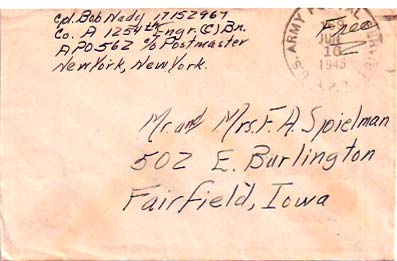 Cpl. Bob Nady 17152967
Co. A 1254th Engr. (C) Bn.
APO 562 c/o Postmaster
New York, New York.
Free
U.S. ARMY POSTAL
JUN
10
1945
Mr. and Mrs. F. A. Spielman
502 E. Burlington
Fairfield, Iowa